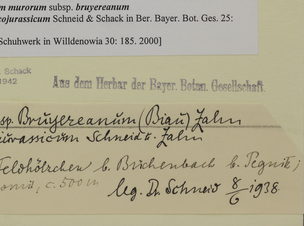 m murorum subsp. bruyereanum
ojurassicum Schneid & Schack in Ber. Bayer. Bot. Ges. 25:
Schuhwerk in Willdenowia 30: 185. 2000]
. Schack
1942
Aus dem Herbar der Bayer. Botan. Gesellschaft.
sp. Bruyereanum (Biau) Zahn
jurassicum Schneid & Zahn
Feldhölzchen b. Büchenbach b. Pegnitz;
c. 500 m
leg. Dr. Schneid 8/6 1938